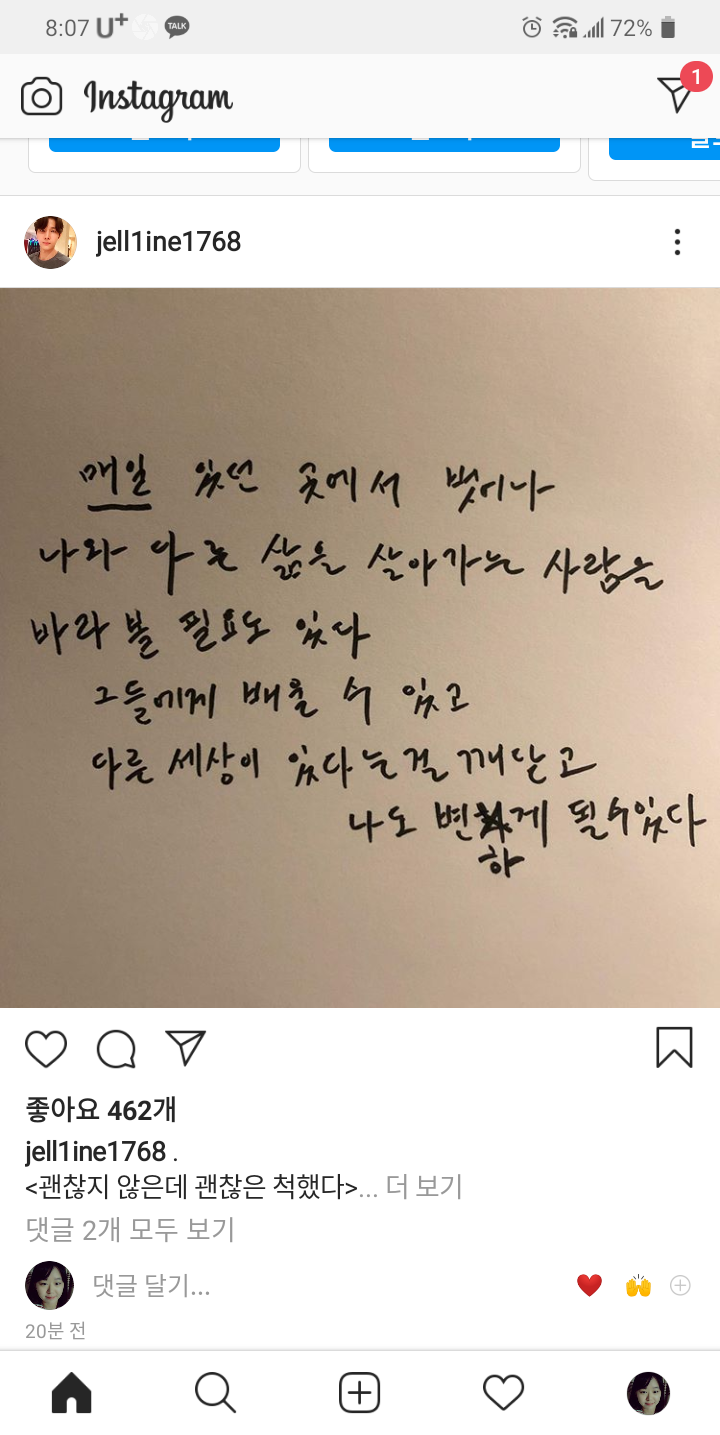 8:07 U+ TALK 72%
Instagram 1
jell1ine1768
매일 있던 곳에서 벗어나
나와 다른 삶을 살아가는 사람을
바라 볼 필요도 있다
그들에게 배울 수 있고
다른 세상이 있다는걸 깨닫고
나도 변하게 될수있다
좋아요 462개
jell1ine1768 .
<괜찮지 않은데 괜찮은 척했다>... 더 보기
댓글 2개 모두 보기
댓글 달기...
20분 전